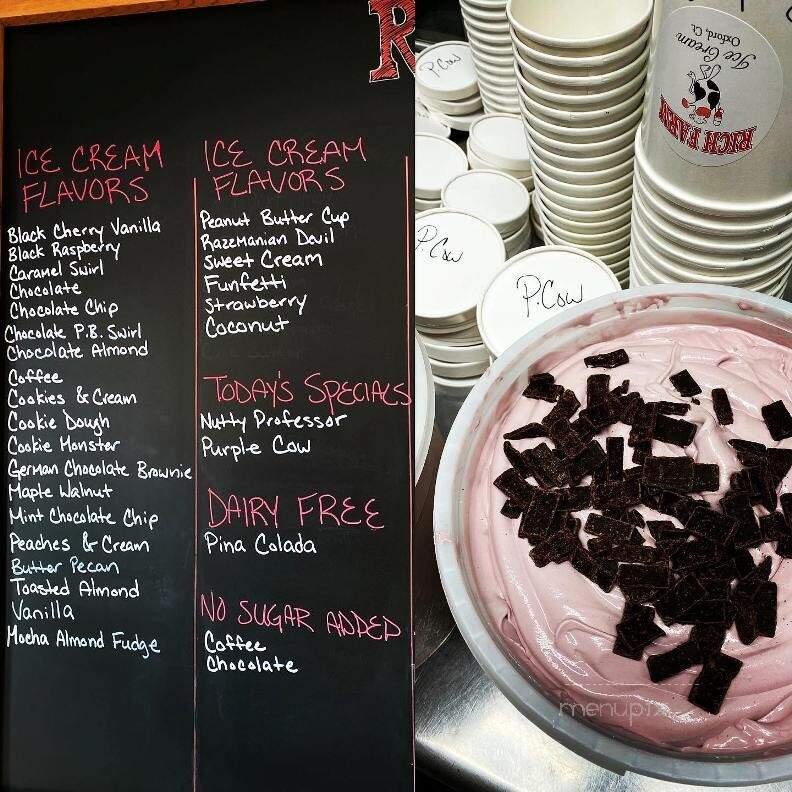 R
ICE CREAM
FLAVORS
Black Cherry Vanilla
Black Raspberry
Caramel Swirl
Chocolate
Chocolate Chip
Chocolate P.B. Swirl
Chocolate Almond
Coffee
Cookies & Cream
Cookie Dough
Cookie Monster
German Chocolate Brownie
Maple Walnut
Mint Chocolate Chip
Peaches & Cream
Butter Pecan
Toasted Almond
Vanilla
Mocha Almond Fudge
ICE CREAM
FLAVORS
Peanut Butter Cup
Razzmanian Devil
Sweet Cream
Funfetti
Strawberry
Coconut
TODAY'S SPECIALS
Nutty Professor
Purple Cow
DAIRY FREE
Pina Colada
NO SUGAR ADDED
Coffee
Chocolate
P.Cow
P.Cow
P.Cow
RICH FARM
Ice Cream
Oxford, Ct.
menupix